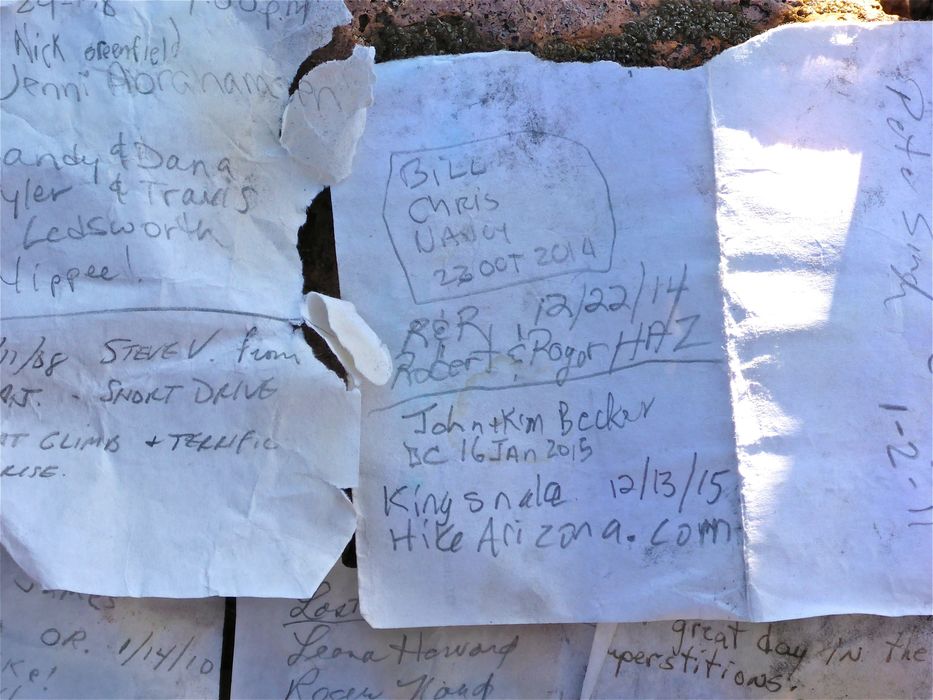 Nick Greenfield
Jenni Abrahamsen
andy & Dana
yler & Travis
Ledsworth
Yippee!
11/88 STEVE V. from
A.J. - SHORT DRIVE
AT CLIMB + TERRIFIC
RISE.
BILL
CHRIS
NANCY
23 OCT 2014
R&R 12/22/14
Robert & Roger HAZ
John + Kim Becker
BC 16 JAN 2015
Kingsnake 12/13/15
HikeArizona.com
1-2-11
OR. 1/14/10
ke!
Lost
Leona Howard
Roger
great day in the
uperstitions.